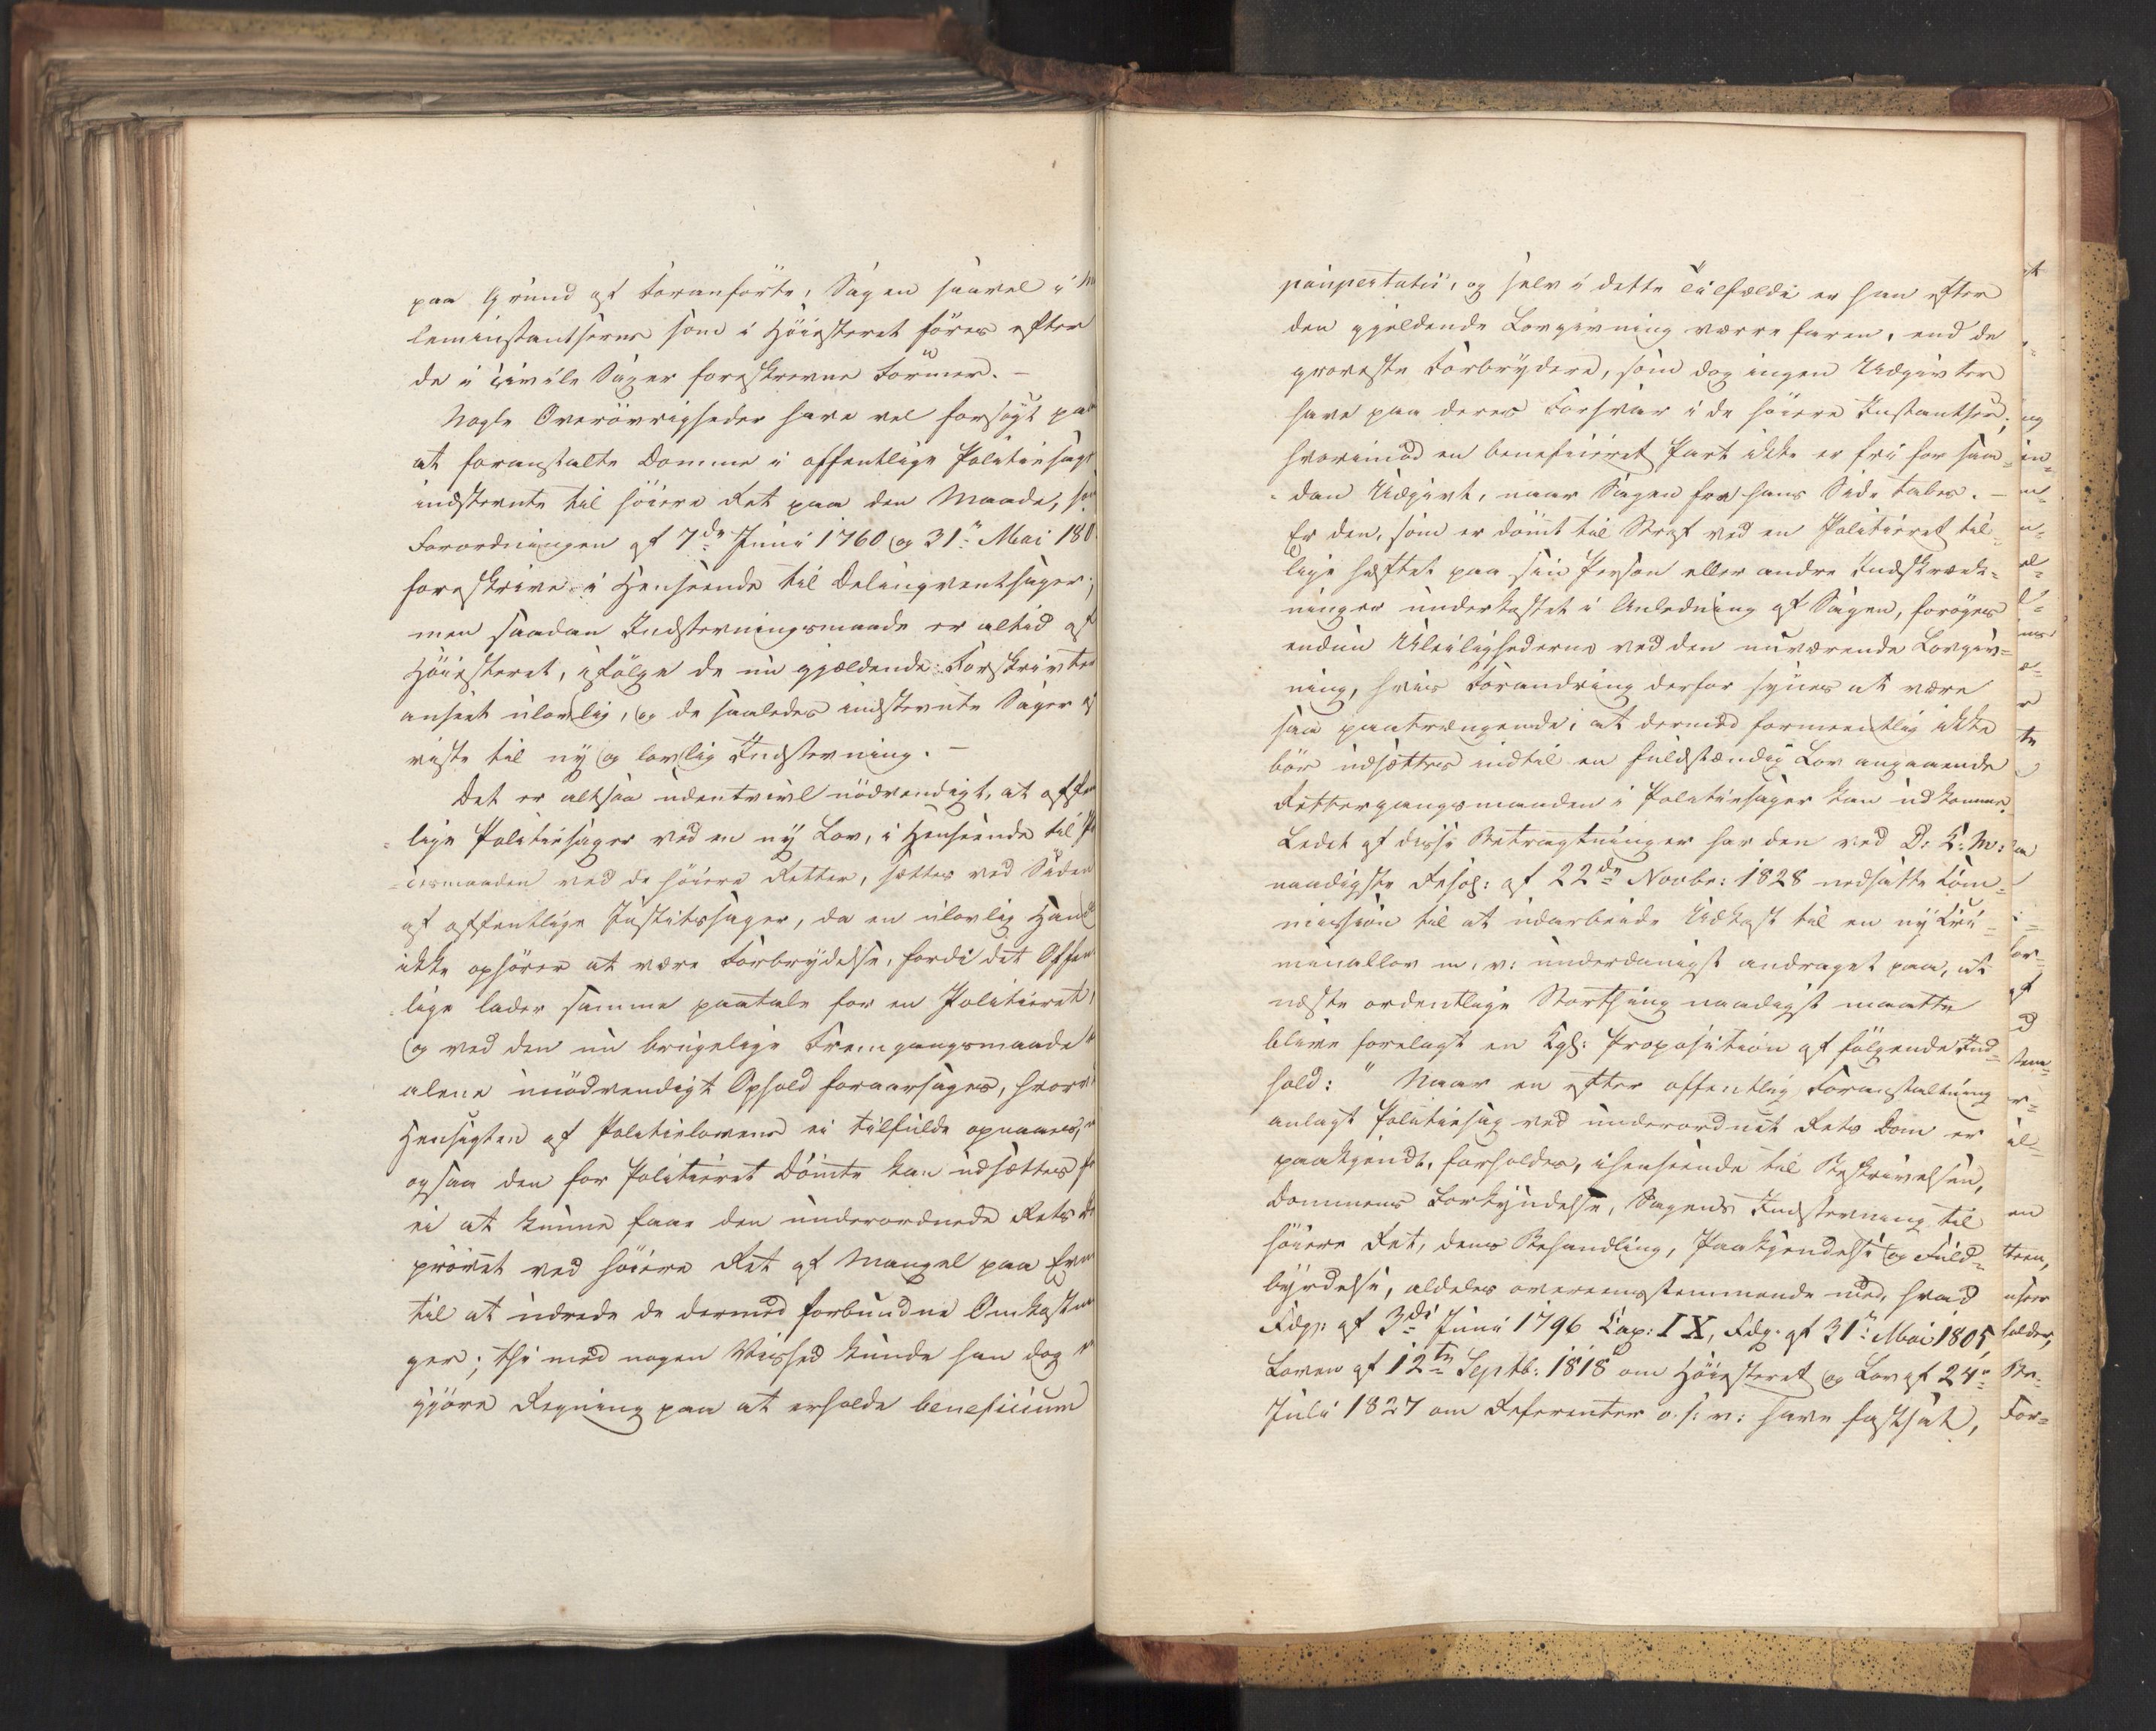 paa Grund af Foranførte, Sagen saavel i M
leminstantserne som i Høiesteret føres efter
de i civile Sager foreskrevne Former. –
Nogle Overøvrigheder have vel forsøgt paa
at foranstalte Domme i offentlige Politiesag
indstevnte til høiere Ret paa den Maade, so
Forordningen af 7de Juni 1760 og 31te Mai 180
foreskrive i Henseende til Delinqventsager;
men saadan Indstevningsmaade er altid af
Høiesteret, ifølge de nu gjældende Forskrivter
anseet ulovlig, og de saaledes indstevnte Sager
viste til ny og lovlig Indstevning. –
Det er altsaa udentvivl nødvendigt, at offen
lige Politiesager ved en ny Lov, i Henseende til
cesmaaden ved de høiere Retter, sættes ved Siden
af offentlige Justitssager, da en ulovlig Hand
ikke ophører at være Forbrydelse, fordi det Offen
lige lader samme paatale for en Politieret,
og ved den nu brugelige Fremgangsmaade
alene unødvendigt Ophold foraarsages, hvorv
Hensigten af Politielovene ei tilfulde opnaaes,
ogsaa den for Politieret Dømte kan udsættes f
ei at kunne faae den underordnede Rets D
prøvet ved høiere Ret af Mangel paa Evne
til at udrede de dermed forbundne Omkostn
ger; thi med nogen Vished kunde han dog
gjøre Regning paa at erholde beneficium
paupertatis, og selv i dette Tilfælde er han efter
den gjeldende Lovgivning værre faren, end de
groveste Forbrydere, som dog ingen Udgivter
have paa deres Forsvar i de høiere Instantser,
hvorimod en beneficeret Part ikke er fri for saa=
dan Udgivt, naar Sagen for hans Side tabes. –
Er den, som er dømt til Straf ved en Politieret til=
lige hæftet paa sin Person eller andre Indskrænk=
ninger underkastet i Anledning af Sagen, forøges
endnu Uleilighederne ved den nuværende Lovgiv=
ning, hvis Forandring derfor synes at være
saa paatrængende, at dermed formeentlig ikke
bør udsættes indtil en fuldstændig Lov angaaende
Rettergangsmaaden i Politiesager kan udkomme.
Ledet af disse Betragtninger har den ved D: K: M:
naadigste Resol: af 22de Novbr: 1828 nedsatte Com=
mission til at udarbeide Udkast til en ny Cri=
minallov m. v: underdanigst andraget paa, at
næste ordentlige Storthing naadigst maatte
blive forelagt en Kgl: Proposition af følgende Ind=
hold: " Naar en efter offentlig Foranstaltning
anlagt Politiesag ved underordnet Rets Dom er
paakjendt, forholdes, ihenseende til Beskrivelsen,
Dommens Forkyndelse, Sagens Indstevning til
høiere Ret, dens Behandling, Paakjendelse og Fuld=
byrdelse, aldeles overeensstemmende med, hvad
Fdg: af 3die Juni 1796 Cap: IX, Fdg. af 31te Mai 1805,
Loven af 12te Septb: 1818 om Høiesteret og Lov af 24de
Juli 1827 om Referenter o. s: v: have fastsat,